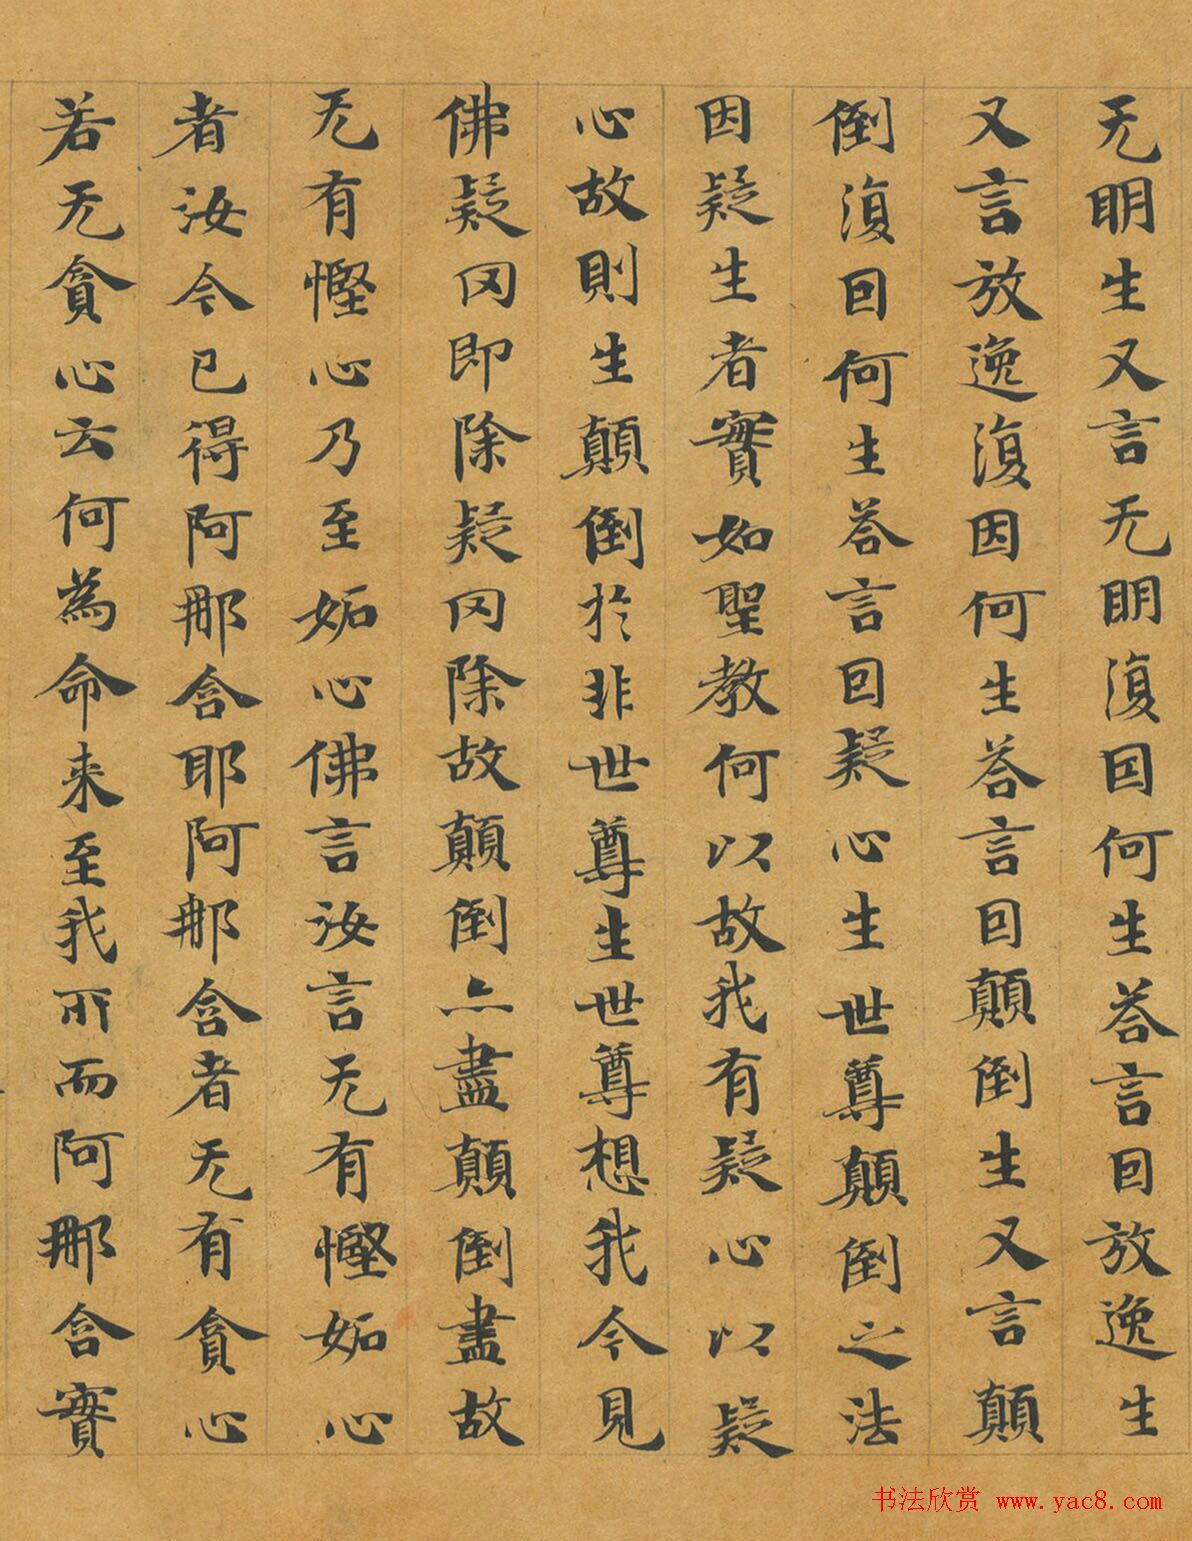 无明生又言无明復因何生荅言因放逸生
又言放逸復因何生荅言因顛倒生又言顛
倒復因何生荅言因疑心生世尊顛倒之法
因疑生者實如聖教何以故我有疑心以疑
心故則生顛倒於非世尊生世尊想我今見
佛疑冈即除疑冈除故顛倒亦盡顛倒盡故
无有慳心乃至妬心佛言汝言无有慳妬心
者汝今已得阿那含耶阿那含者无有貪心
若无貪心云何為命来至我所而阿那含實
书法欣赏 www.yac8.com